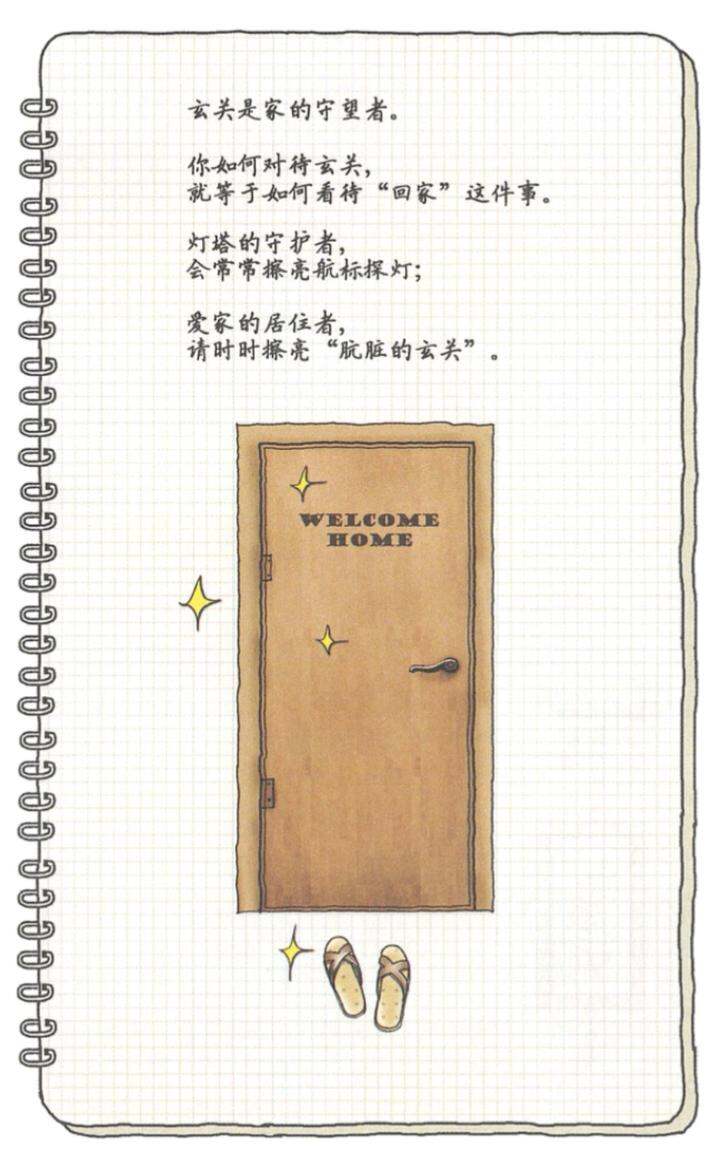 玄关是家的守望者。
你如何对待玄关，
就等于如何看待“回家”这件事。
灯塔的守护者，
会常常擦亮航标探灯；
爱家的居住者，
请时时擦亮“肮脏的玄关”。
WELCOME
HOME